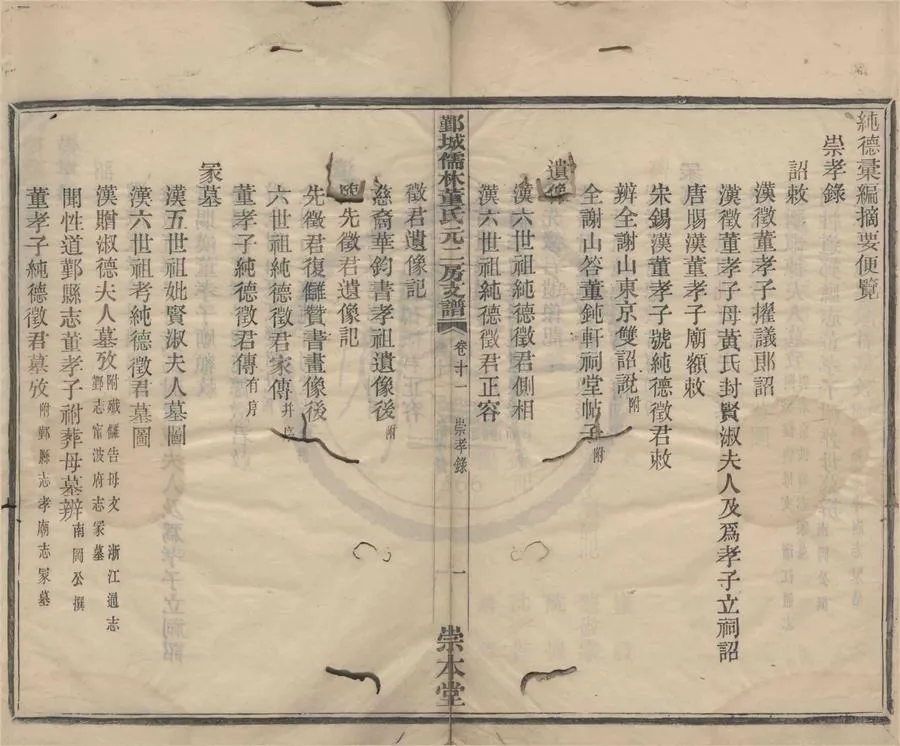 純德彙編摘要便覽
崇孝錄
詔敕
漢徵董孝子擢議郎詔
漢徵董孝子母黃氏封賢淑夫人及爲孝子立祠詔
唐賜漢董孝子廟額敕
宋錫漢董孝子號純德徵君敕
辨全謝山東京雙詔說附
全謝山答董鈍軒祠堂帖子附
遺像
漢六世祖純德徵君側相
漢六世祖純德徵君正容
鄞城儒林董氏元二房支譜 卷十一 崇孝錄 一 崇本堂
徵君遺像記
慈裔華鈞書孝祖遺像後附
先徵君遺像記
先徵君復讎贊書畫像後
六世祖純德徵君家傳并序
董孝子純德徵君傳有序
冢墓
漢五世祖妣賢淑夫人墓圖
漢六世祖考純德徵君墓圖
漢贈淑德夫人墓攷附殲讎告母文 浙江通志 鄞志甯波府志冢墓
聞性道鄞縣志董孝子祔葬母墓辨南岡公撰
董孝子純德徵君墓攷附鄞縣志孝廟志冢墓